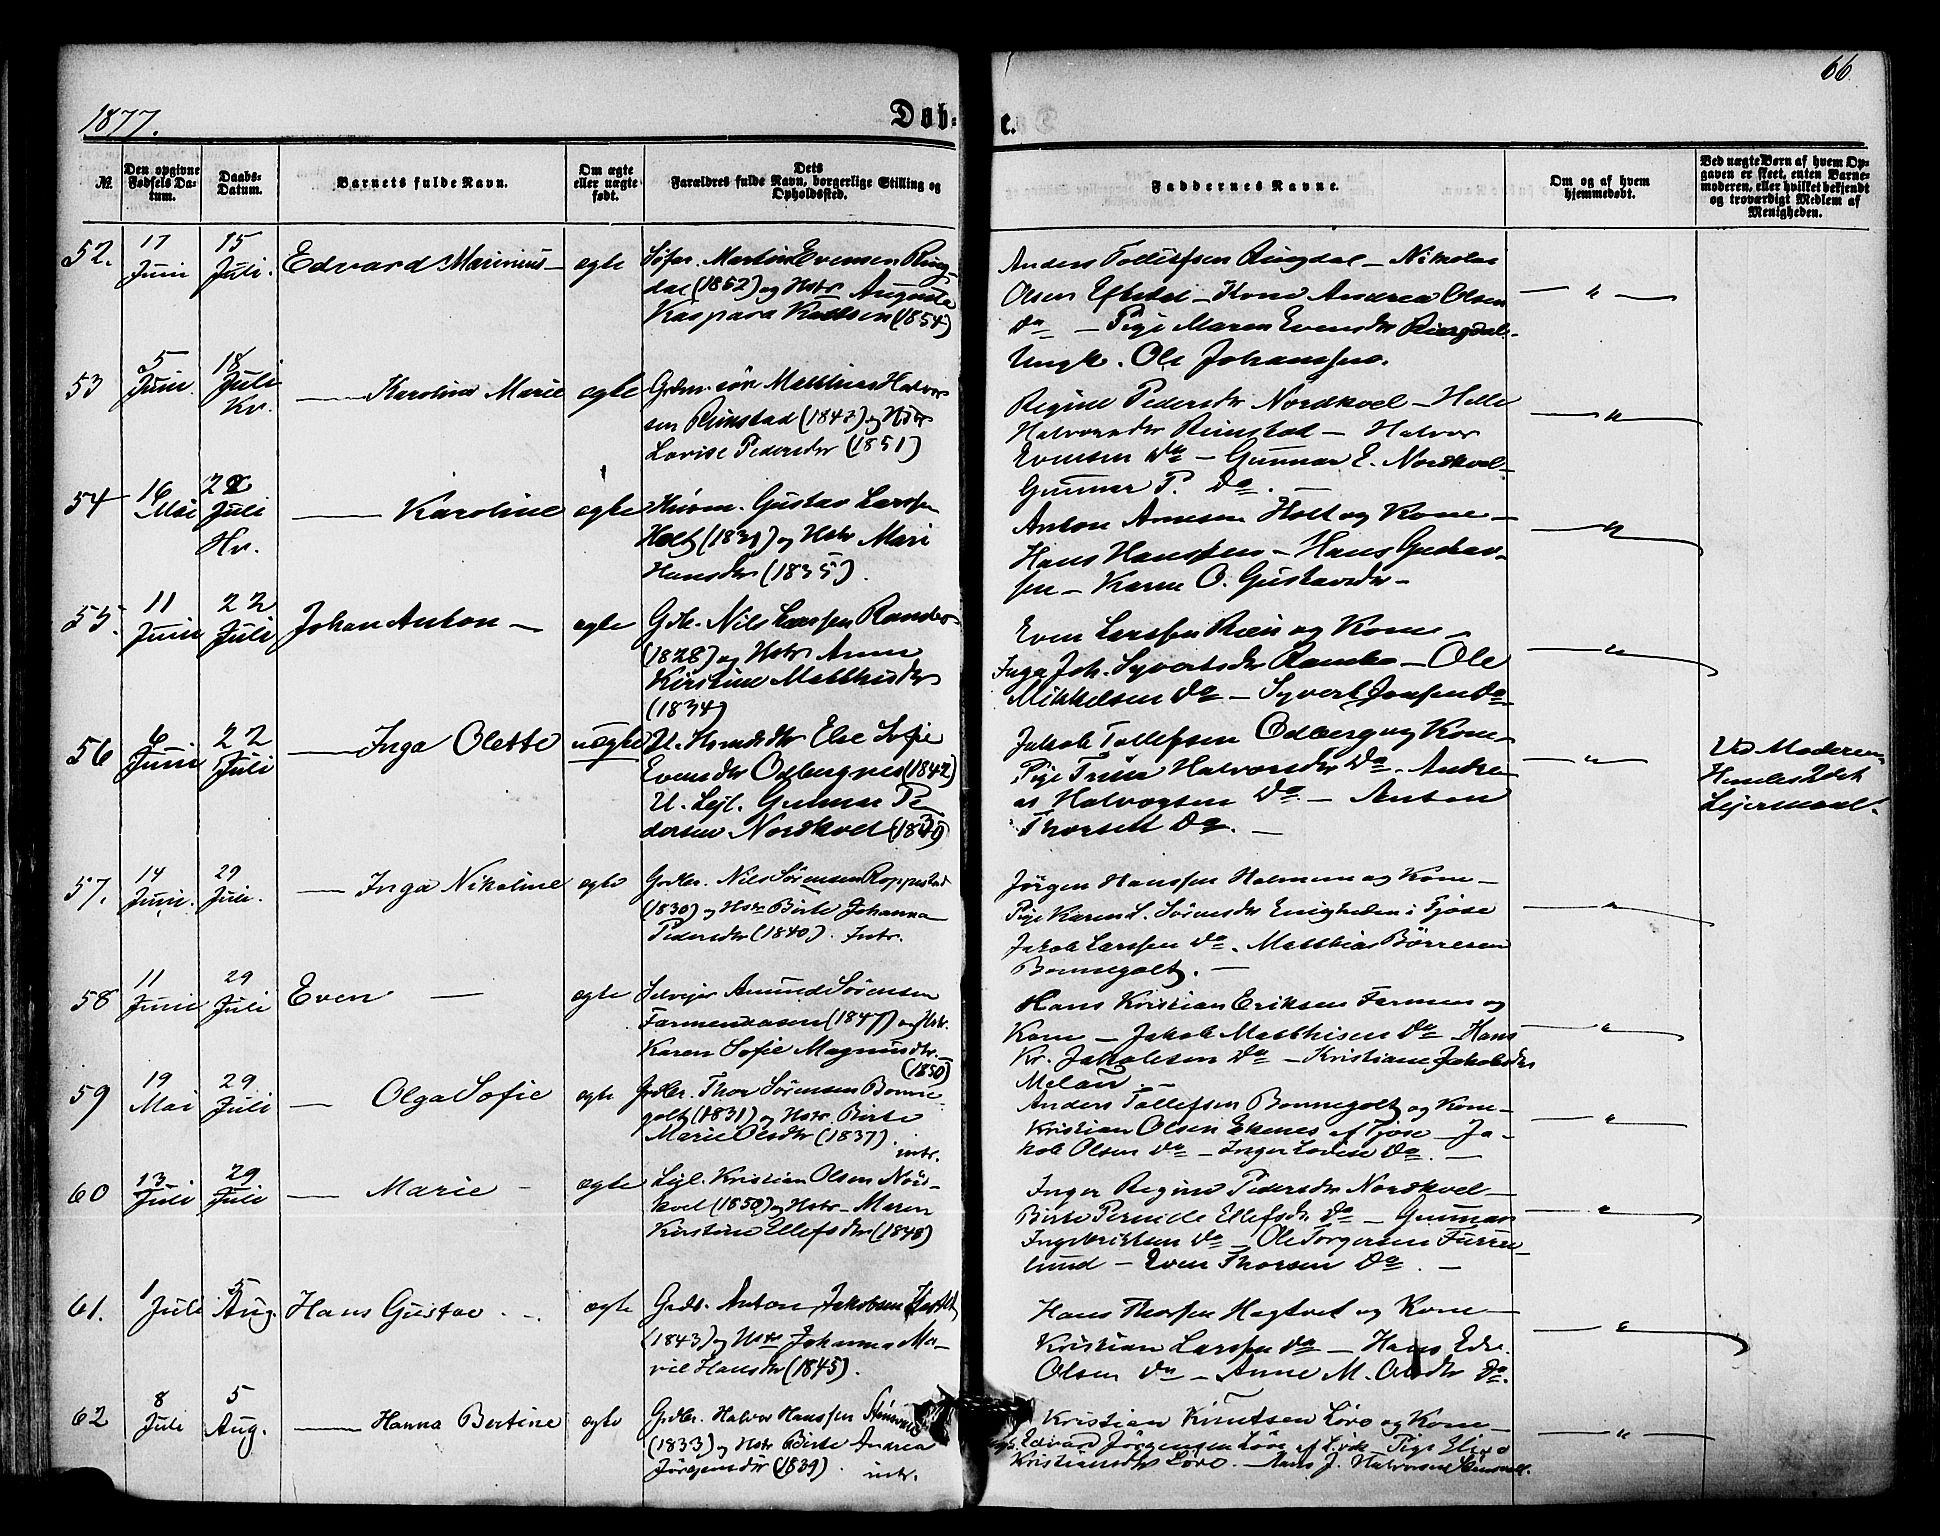 66
1877.
Døbte.
№.
Den opgivne Fødsels Datum.
Daabs-Datum.
Barnets fulde Navn.
Om ægte eller uægte født.
Dets Forældres fulde Navn, borgerlige Stilling og Opholdssted.
Faddernes Navne.
Om og af hvem hjemmedøbt.
Ved uægte Børn af hvem Opgaven er skeet, enten Barnemoderen, eller hvilket bekjendt og troværdigt Medlem af Menigheden.
52. 17 Juni 15 Juli. Edvard Marinius – ægte
Martin Evensen Ring-
dal (1852) og Hstr Augusta
Kaspara (1854)
Anders Tollefsen Ringdal – Nikolai
Olsen – Kone Andrea Olsen
Do – Pige Maren Evensdtr Ringdal –
Ungk. Ole Johanssen.
53 5 Juni. 18 Juli Kr. — Karoline Marie ægte
Grdm. søn Matthias Halvor
sen Rimstad (1843) og Hstr
Lovise Pedersdtr (1851)
Regine Pedersdr Nordkvel – Helle
Halvorsdr Rimstad – Halvor
Evensen Do – Gunnar E. Nordkvel –
Gunnar P. Do.
54 16 Mai 22 Juli Hv. — Karoline ægte
Husm. Gustav Larssen
Holt (1831) og Hstr Mari
Hansdtr (1835).
Anton Arnesen Holt og Kone –
Hans Hanssen – Hans Gustav-
sen – Karen O. Gustavsdr –
55. 11 Juni 22 Juli Johan Anton – ægte
Grdbr. Nils Larssen
(1828) og Hstr Anne
Kirstine Matthisdtr
(1834)
Even Larssen og Kone –
Inga Joh. Syvertsdr – Ole
Mikkelsen Do – Syvert Jonsen Do –
56 6 Juni 22 Juli — Inga Olette uægte
U. Else Sofie
Evensdtr Odberg (1842)
U. Lejl. Gunnar Pe
dersen Nordkvel (1849)
Jakob Tollefsen Odberg og Kone –
Pige Trine Halvorsdtr Do. Andre-
as Halvorsen Do. – Anton
Thorsen Do. –
Ved Moderen
Hendes 2det
Lejermaal.
57. 14 Juni. 29 Juli. — Inga Nikoline ægte
Grdbr. Nils Sørensen Roppestad
(1830) og Hstr Birte Johanna
Pedersdtr (1840). Intr.
Jørgen Hanssen Holmen og Kone –
Pige Karen L. Sørensdr Enigheden i Tjøse
Jakob Larssen Do. Matthias Børresen
Bonnegolt. –
58 11 Juni 29 Juli Even — ægte
Selvejer Amund Sørensen
Farmenaasen (1847) og Hstr.
Karen Sofie Magnusdtr. –
(1850)
Hans Kristian Eriksen Farmen og
Kone – Jakob Matthisen Do – Hans
Kr. Jakobsen Do – Kristiane Jakobsdtr
Melau. –
59 19 Mai 29 Juli — Olga Sofie ægte
Grdbr. Thor Sørensen Bonne
golt (1831) og Hstr. Birte
Marie Olsdtr (1837).
intr.
Anders Tollefsen Bonnegolt og Kone –
Kristian Olsen Ekenes af Tjøse – Ja-
kob Olsen Do – Inger Lovise Do. –
60 13 Juli 29 Juli — Marie – ægte
Lejl. Kristian Olsen Nord-
kvel (1850) og Hstr – Maren
Kirstine Ellefsdtr (1848)
Inger Regine Pedersdtr Nordkvel –
Birte Pernille Ellefsdr Do – Gunnar
Ingebriktsen Do – Ole Torgersen Furre-
lund – Even Thorsen Do. –
61. 1 Juli 5 Aug. Hans Gustav – ægte
Grdb. Anton Jakobsen
(1843) og Hstr Johanna Ma-
rie Hansdtr (1845).
Hans Thorsen Hagtvet og Kone –
Kristian Larssen Do – Hans Edv.
Olsen Do – Anne M. Olsdtr Do.
62 8 Juli 5 Aug. — Hanna Bertine ægte
Grdbr. Halvor Hanssen
(1833) og Hstr Birte Andrea
Jørgensdtr (1839). intr.
Kristian Knutsen Løve og Kone –
Edvard Jørgensen Løve – Pige
Kristiansdtr Løve. – Hans J. Halvorsen